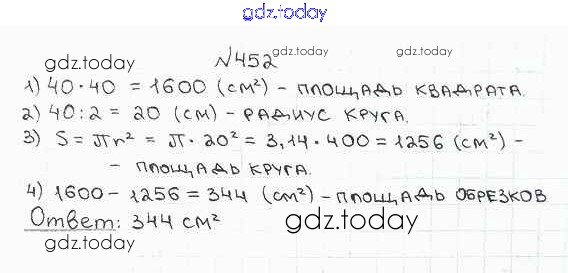 gdz.today
№452
gdz.today gdz.today gdz.today
1) 40·40 = 1600 (см²) - площадь квадрата.
2) 40:2 = 20 (см) - радиус круга.
3) S = πr² = π·20² = 3,14·400 = 1256 (см²) -
- площадь круга.
4) 1600 - 1256 = 344 (см²) - площадь обрезков
Ответ: 344 см²
gdz.today
gdz.today